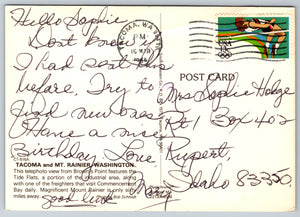 Hello Sophie
Dont know if
I had sent this
before. Try to
find new ones.
Have a nice
Birthday. Love,
good luck
TACOMA, WA
PM
USA
POST CARD
Mrs Sophie Hodge
Rt 1 Box 402
Rupert,
Idaho 83350
TACOMA and MT. RAINIER, WASHINGTON
This telephoto view from Browns Point features the
Tide Flats, a portion of the industrial area, along
with one of the freighters that visit Commencement
Bay daily. Magnificent Mount Rainier is